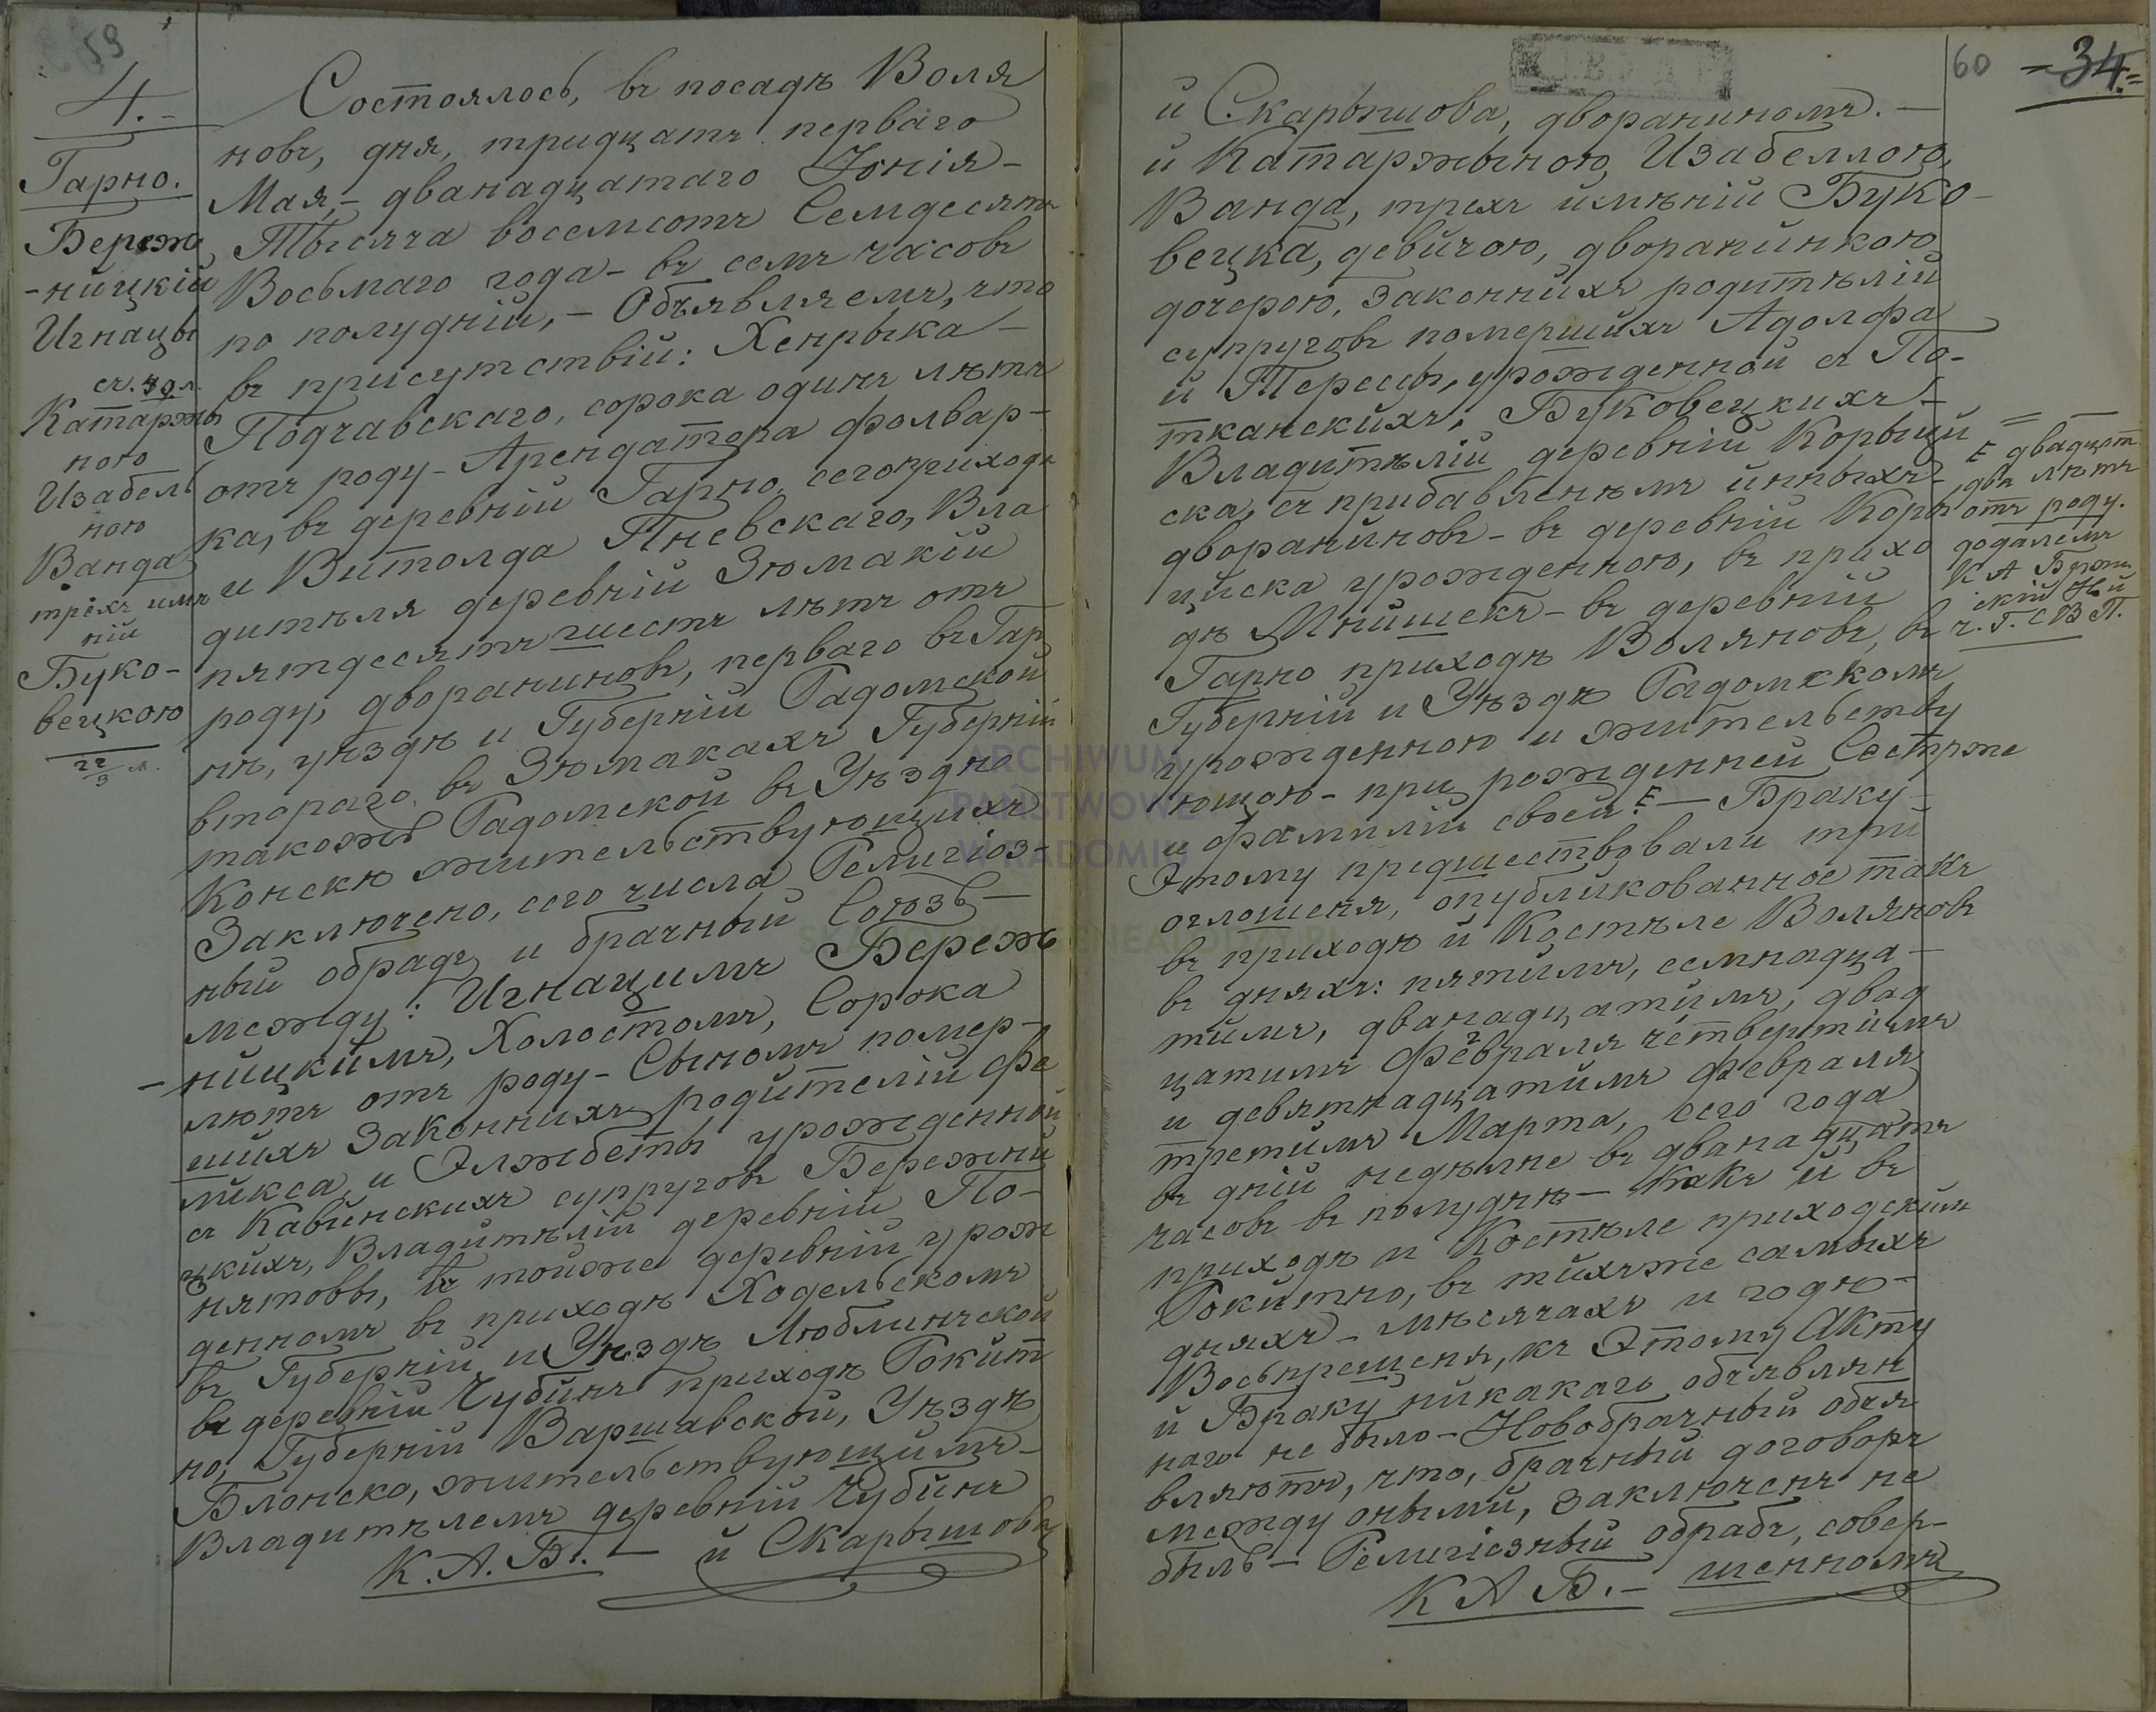 59
4.
Гарно.
Береж
-ницкій
Игнацы
съ. зол.
Катарж
ною
Изабел
ною
Ванда
трехъ имѣ
ній
Буко-
вецкою
Состоялось, въ посадѣ Воля
новъ, дня, тридцать перваго
Мая, - дванадцатаго Іюнія -
Тысяча восемсотъ Семдесятъ
Восьмаго года - въ семъ часовъ
по полудній, - Объявляемъ, что
въ присутствій: Хенрыка -
Подчавскаго, сорока одинъ лѣтъ
отъ роду - Арендатора фолвар-
ка, въ деревній Гарно, сегоприхода
и Витолда Пневскаго, Вла
дитѣля деревній Зюмакій
пятдесятъ шесть лѣтъ отъ
роду, дворяниновъ, перваго въ Гар
нѣ, уѣздѣ и Губерній Радомской
втораго, въ Зюмакахъ Губерній
такожъ Радомской въ Уѣздѣ
Конскѣ жительствующихъ
Заключено, сего числа Религіоз-
ный обрадъ и брачный Союзъ -
между: Игнацимъ Береж
-ницкимъ, Холостомъ, Сорока
лѣтъ отъ роду - Сыномъ помер-
шихъ Законнихъ родителій Фе
ликса, и Элжбеты урожденной
съ Кавинскихъ супруговъ Бережни
цкихъ, Владитѣлій деревній По-
нятовы, въ тойже деревній урож
денномъ въ приходѣ Ходельскомъ
въ Губерній и Уѣздѣ Люблинской
въ деревній Чубинъ приходѣ Рокит
но, Губерній Варшавской, Уѣздѣ
Блонско, жительствующимъ -
Владитѣлемъ деревній Чубинъ
К. А. Б. - и Скарышова
60 =34.=
и Скарышова, дворяниномъ. -
и Катаржыною, Изабеллою,
Ванда, трехъ имѣній Буко-
вецка, девичою, дворянинкою
дочерою, Законнийхъ родитѣлій
супруговъ помершихъ Адолфа
и Тересы, урожденной съ По-
тканскихъ, Буковецкихъ -
Владитѣлій деревній Корыцй
ска, съ прибавленѣмъ инныхъ -
дворяниновъ - въ деревній Коры
циска урожденною, въ прихо
дѣ Мнишекъ - въ деревній
Гарно приходѣ Воляновъ, въ
Губерній и Уѣздѣ Радомскомъ
урожденною и жительству
ющою - при рожденней Сестрже
и фамилій своей. Е - Браку -
Этому предшествовали три
оглошеня, опубликованное такъ
въ приходѣ и Костѣле Воляновъ
въ дняхъ: пятимъ, семнадца -
тимъ, дванадцатимъ, двад
цатимъ Февраля четвертимъ
и девятнадцатимъ Февраля
третимъ Марта, сего года
въ дній недѣлне въ дванадцать
часовъ въ полуднѣ - какъ и въ
приходѣ и Костѣле приходскимъ
Рокитно, въ тихъже самыхъ
дняхъ - мѣсячахъ и годѣ -
Восьпрещеня, къ Этому Акту
и Браку никакаго объявлян
наго не было - Новобрачный объя
вляютъ, что, брачный договоръ
между онымй, заключенъ не
былъ - Религіозный обрабъ, совер-
К А Б. - шенномъ
Е двадцат
два лѣтъ
отъ роду.
додалемъ
К А Береж